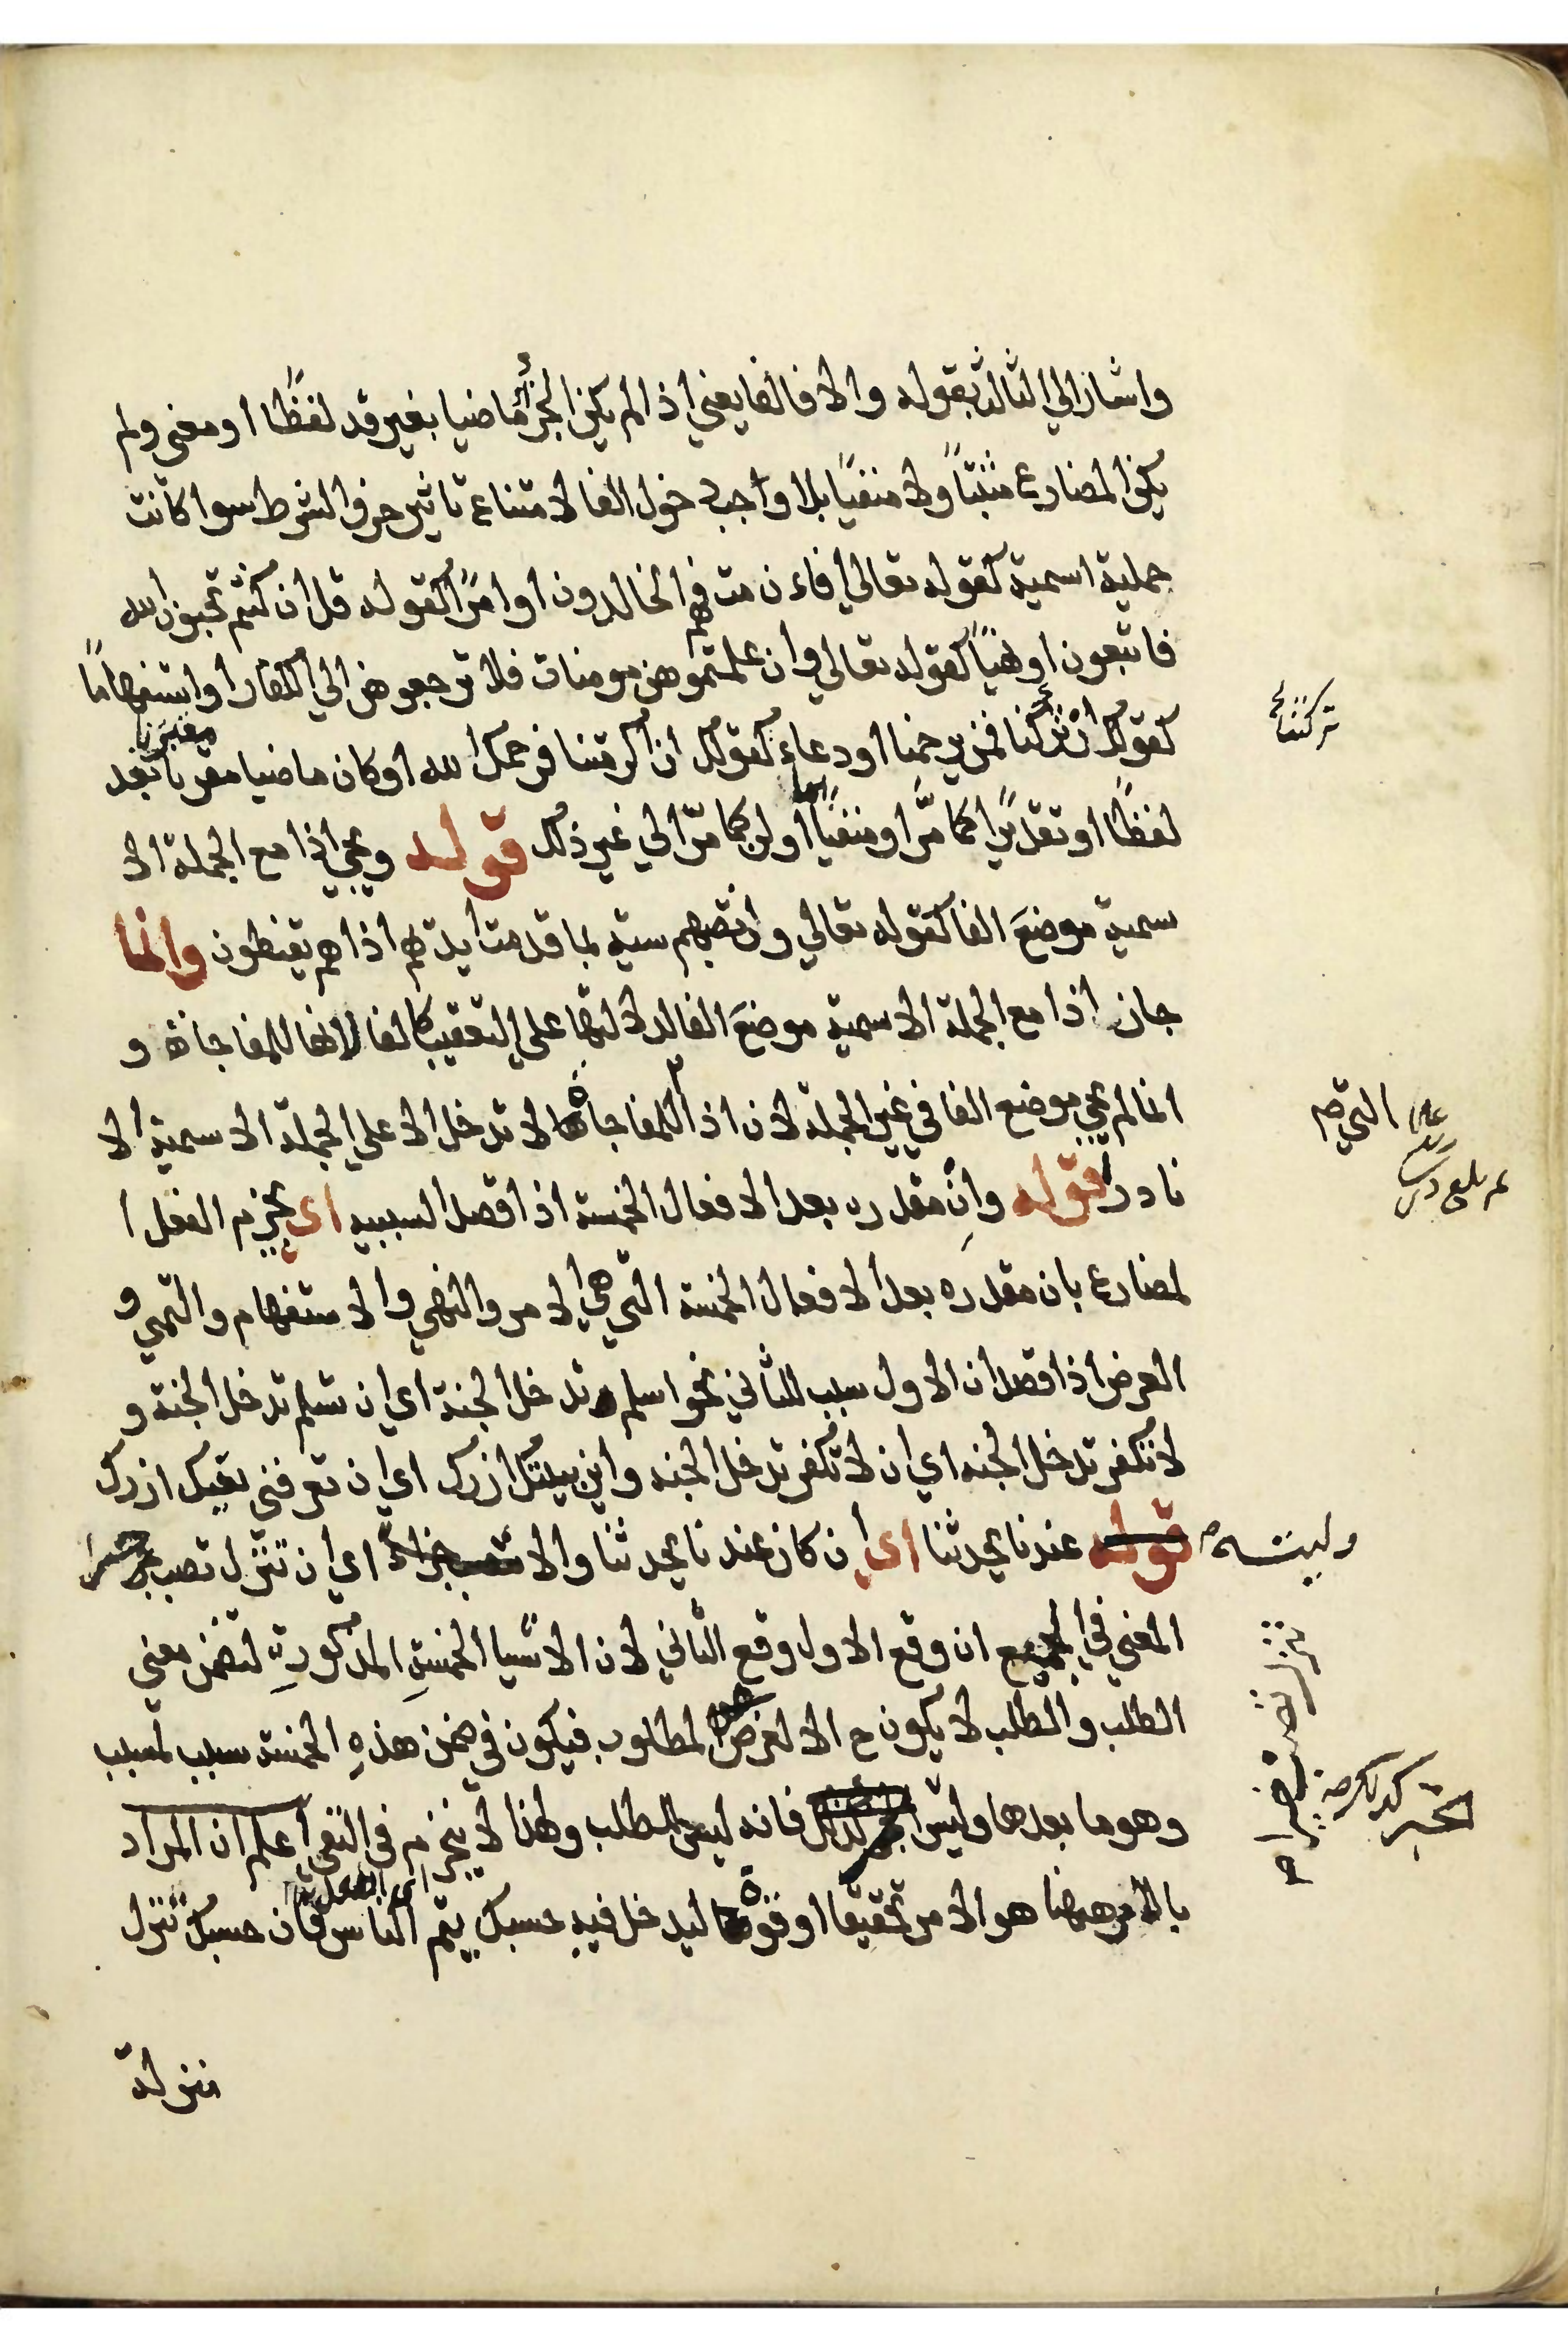 واشار الي الثالث بقوله والا فالفا يعني اذا لم يكن الجزأ ماضيا بغير قد لفظًا او معنى ولم
يكن المضارع مثبتًا ولا منفيًا بلا واجب دخول الفا لامتناع تاثير حرف الشرط سوا كانت
جملية اسمية كقوله تعالي افاءن مت فهم الخالدون او امرًا كقوله قل ان كنتم تحبون الله
فاتبعون او نهيًا كقوله تعالي وان علمتموهن مومنات فلا ترجعوهن الي الكفار او استفهامًا
كقولك ان تركنا فمن يرحمنا او دعاء كقولك ان اكرمتنا فرحمك الله او كان ماضيا مقرنا بقد
لفظًا او تقديرًا كما مرّ او منفيًا بما او لن كما مرّ الي غير ذلك قوله ويجي اذا مع الجملة الا
سمية موضعَ الفا كقوله تعالي وان تصبهم سيئة بما قدمت ايديهم اذا هم يقنطون وانما
جاز اذا مع الجملة الاسمية موضعَ الفا لدلالتها علي التعقيب كالفا لانها للمفاجاة و
انما لم يجي موضع الفا في غير الجملة لان اذا المفاجاة لا تدخل الا علي الجملة الاسمية الا
نادرا قوله وانِ مقدره بعد الافعال الخمسة اذا قصد السببيه اى يجزم الفعل ا
لمضارع بان مقدره بعد الافعال الخمسة التي هي الامر والنهي والاستفهام والتمني و
العرض اذا قصد ان الاول سبب للثاني نحو اسلم تدخل الجنة اي ان تسلم تدخل الجنة و
لا تكفر تدخل الجنه اي ان لا تكفر تدخل الجنه واين بيتك ازرك اي ان تعرفني بيتك ازرك
قوله عندنا يحدثنا اى ان كان عندنا يحدثنا والا اي ان تنزل تصب
المعني في الجميع ان وقع الاول وقع الثاني لان الاشيا الخمسةِ المذكورةِ لتضمن معني
الطلب والطلب لا يكون ح الا لغرض المطلوب فيكون في ضمن هذهِ الخمسة سبب لمسبب
وهو ما بعدها وليس كذلك فانه ليس للطلب ولهذا لا ينجزم في النفي اعلم ان المراد
بالامر ههنا هو الامر تحقيقا او قوة ليدخل فيهِ حسبك ينم الناس فان حسبك تنزل
منزلة
تركتنا
التي صح
وليته